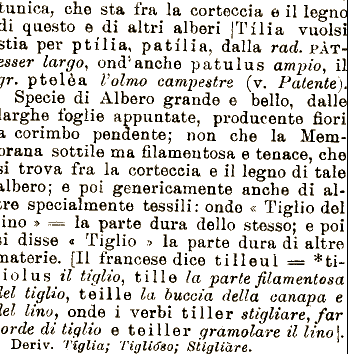 tunica, che sta fra la corteccia e il legno
di questo e di altri alberi [Tília vuolsi
stia per ptília, patília, dalla rad. PÀT-
esser largo, ond'anche patulus ampio, il
gr. ptelèa l'olmo campestre (v. Patente).
Specie di Albero grande e bello, dalle
larghe foglie appuntate, producente fiori
a corimbo pendente; non che la Mem-
brana sottile ma filamentosa e tenace, che
si trova fra la corteccia e il legno di tale
albero; e poi genericamente anche di al-
tre specialmente tessili: onde « Tiglio del
lino » = la parte dura dello stesso; e poi
si disse « Tiglio » la parte dura di altre
materie. [Il francese dice tilleul = *ti-
liolus il tiglio, tille la parte filamentosa
del tiglio, teille la buccia della canapa e
del lino, onde i verbi tiller stigliare, far
corde di tiglio e teiller gramolare il lino].
Deriv. Tiglia; Tiglióso; Stigliàre.